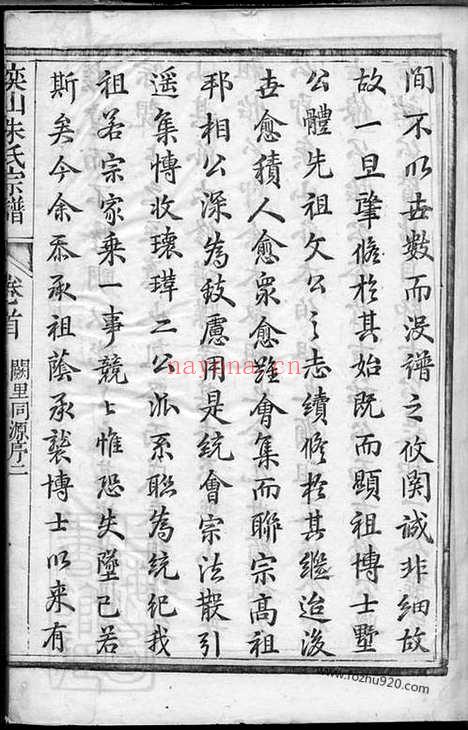 間不以世數而沒譜之攸関誠非細故
故一旦肇脩於其始既而顯祖博士墅
公體先祖文公之志續脩於其繼迨後
世愈積人愈衆愈難會集而聯宗高祖
邦相公深為致慮用是統會宗法散引
遥集博收瓌瑋二公派系聯為統紀我
祖若宗家乗一事競〻惟恐失墜已若
斯矣今余忝承祖蔭承襲博士以来有
奕山朱氏宗譜
卷首
闕里同源序二
nayona.cn
www.rozhu920.com